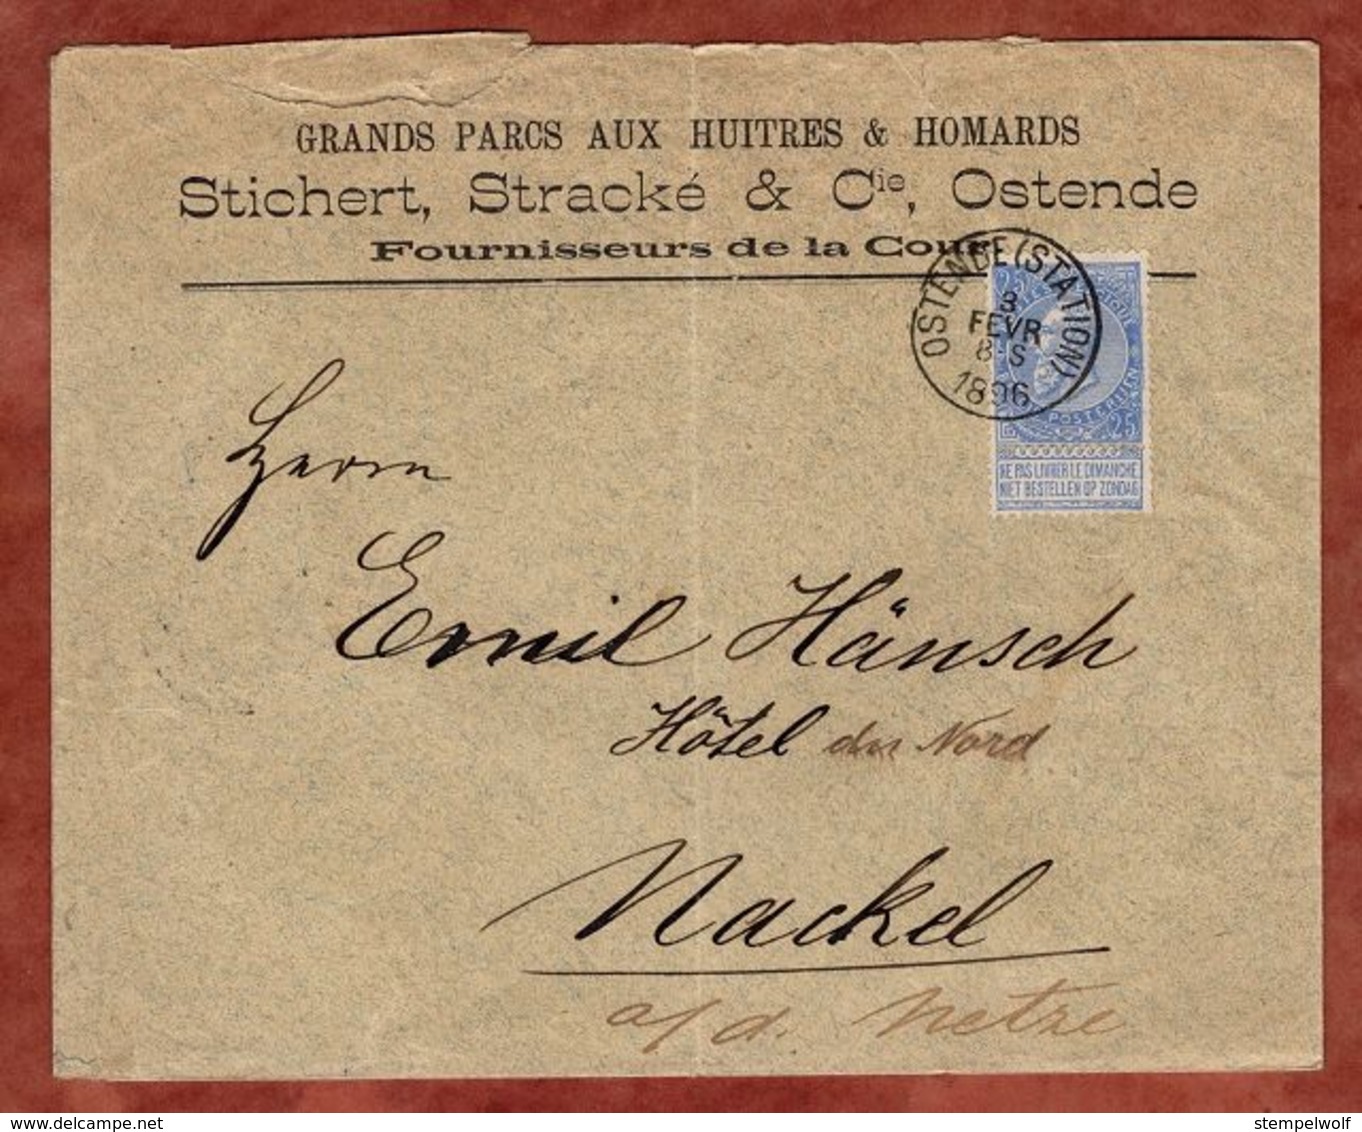 GRANDS PARCS AUX HUITRES & HOMARDS
Stichert, Stracké & Cie, Ostende
Fournisseurs de la Cour
OSTENDE (STATION)
8
FEVR
8-S
1896
POSTERIJEN
25
NE PAS LIVRER LE DIMANCHE
NIET BESTELLEN OP ZONDAG
Herrn
Emil Hänsch
Hôtel du Nord
Nackel
a/d. Netze
www.delcampe.net
stempelwolf